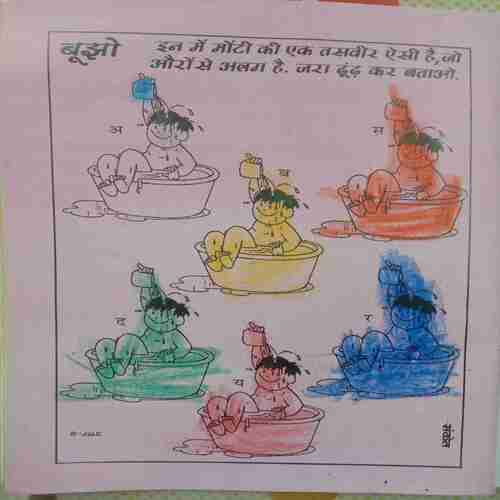 बूझो
इन में मोंटी की एक तसवीर ऐसी है, जो
औरों से अलग है. जरा ढूंढ़ कर बताओ.
अ
ब
स
द
य
र